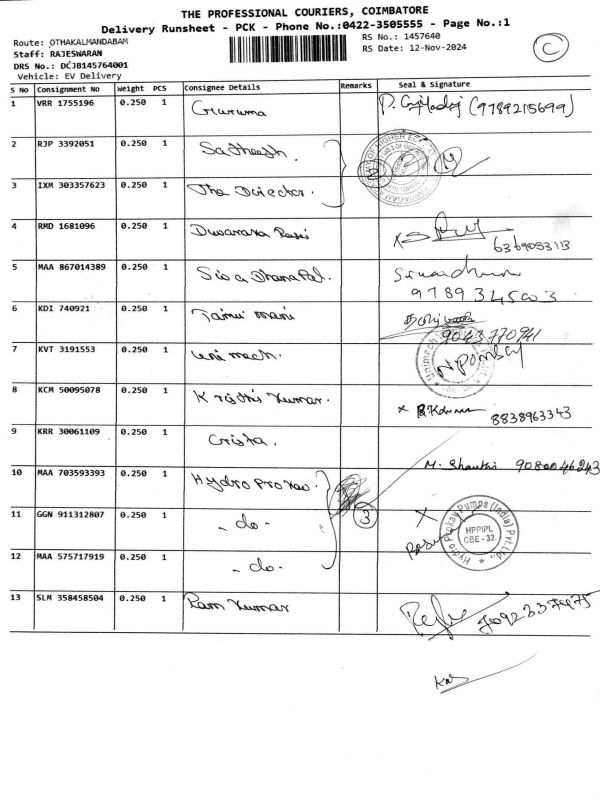 THE PROFESSIONAL COURIERS, COIMBATORE
Delivery Runsheet - PCK - Phone No.:0422-3505555 - Page No.:1
Route: OTHAKALMANDABAM
Staff: RAJESWARAN
DRS No.: DCJB145764001
Vehicle: EV Delivery
RS No.: 1457640
RS Date: 12-Nov-2024
C
S No Consignment No Weight PCS Consignee Details Remarks Seal & Signature
1 VRR 1755196 0.250 1 Guruma (9789215699)
2 RJP 3392051 0.250 1 Satheesh.
3 IXM 303357623 0.250 1 The Director.
4 RMD 1681096 0.250 1 Dwaraka 6369053113
5 MAA 867014389 0.250 1 Siva Dhanapal.
9789345003
6 KDI 740921 0.250 1 mani
9043770941
7 KVT 3191553 0.250 1 Unimech.
8 KCM 50095078 0.250 1 Krithi Kumar. 8838963343
9 KRR 30061109 0.250 1 Crista. M. Shanthi 9080046243
10 MAA 703593393 0.250 1 Hydro Prokav
11 GGN 911312807 0.250 1 - do - 3
12 MAA 575717919 0.250 1 - do -
Hydro Prokav Pumps (India) Pvt. Ltd.,
HPPIPL
CBE - 32.
13 SLM 358458504 0.250 1 Ram Kumar